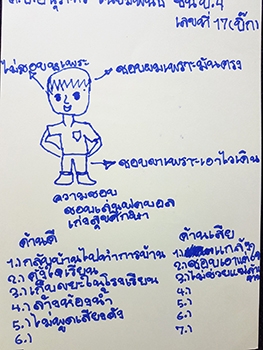 ชั้น ป.4
เลขที่ 17(บิ๊ก)
ไม่ชอบหูเพราะ
ชอบผมเพราะมันตรง
ชอบขาเพราะเอาไว้เดิน
ความชอบ
ชอบเล่นฟุตบอล
เก่งสุขศึกษา
ด้านดี
1.) กลับบ้านไปทำการบ้าน
2.) ตั้งใจเรียน
3.) เก็บขยะในโรงเรียน
4.) ล้างห้องน้ำ
5.) ไม่พูดเสียงดัง
6.)
ด้านเสีย
1.) แกล้ง
2.) ชอบเอาแต่
3.) ไม่ช่วยแม่
4.)
5.)
6.)
7.)